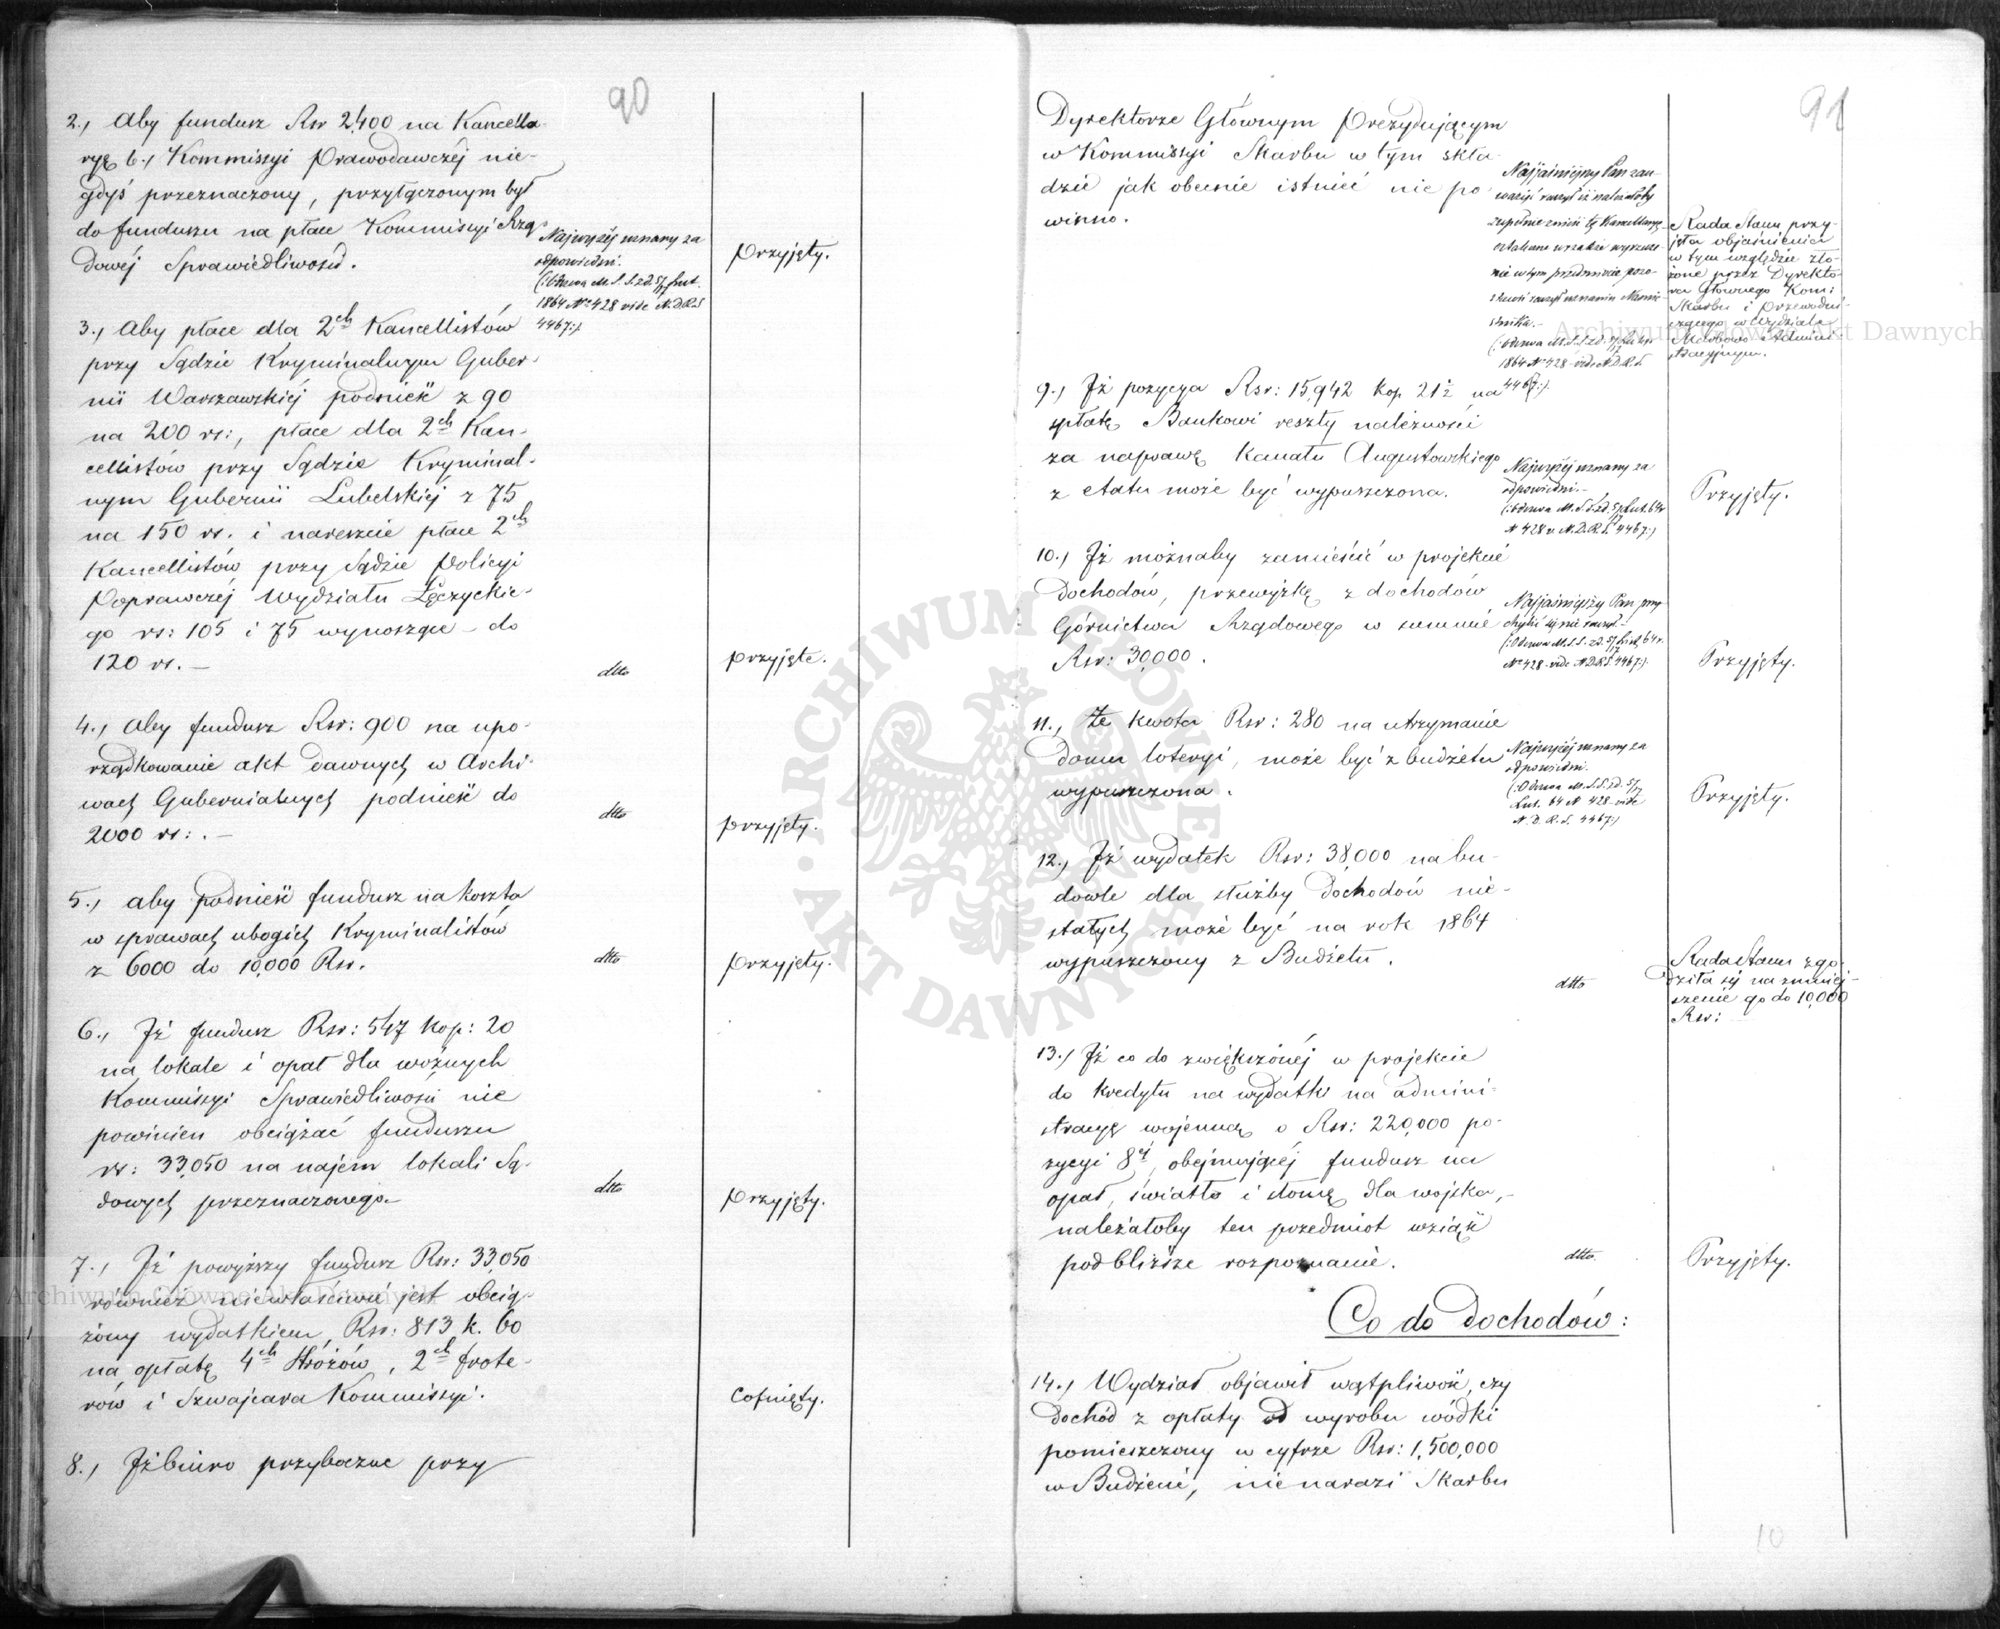 90
2., Aby fundusz Rsr 2,400 na Kancella-
ryę b., Kommissyi Prawodawczéj nie-
gdyś przeznaczony, przyłączonym był
do funduszu na płace Kommissyi Rzą-
dowéj Sprawiedliwości.
Najwyżéj uznany za
odpowiedni.
(: Odezwa M. S. S. z d. 5/17 Lut.
1864 Nr 428 vide N. D. R. S
4467:)
Przyjęty.
3., Aby płace dla 2ch Kancellistów
przy Sądzie Kryminalnym Guber-
nii Warszawskiéj podnieść z 90
na 200 rs:, płace dla 2ch Kan-
cellistów przy Sądzie Kryminal-
nym Gubernii Lubelskiéj z 75
na 150 rs. i nareszcie płace 2ch
Kancellistów przy Sądzie Policyi
Poprawczéj Wydziału Łęczyckie-
go rs: 105 i 75 wynoszące – do
120 rs. –
dtto
przyjęte.
4., Aby fundusz Rsr: 900 na upo-
rządkowanie akt dawnych w Archi-
wach Gubernialnych podnieść do
2000 rs: . –
dtto
przyjęty.
5., aby podnieść fundusz na koszta
w sprawach ubogich Kryminalistów
z 6000 do 10,000 Rsr.
dtto
przyjęty.
6., Iż fundusz Rsr: 547 kop: 20
na lokale i opał dla woźnych
Kommissyi Sprawiedliwości nie
powinien obciążać funduszu
rs: 33,050 na najem lokali Są-
dowych przeznaczonego.
dtto
Przyjęty.
7., Iż powyższy fundusz Rsr: 33,050
również niewłaściwie jest obcią-
żony wydatkiem Rsr: 813 k. 60
na opłatę 4ch Stróżów, 2ch frote-
rów i Szwajcara Kommissyi.
Cofnięty.
8., Iż biuro przyboczne przy
91
Dyrektorze Głównym Prezydującym
w Kommissyi Skarbu w tym skła-
dzie jak obecnie istnieć nie po-
winno.
Najjaśniejszy Pan zau-
ważyć raczył iż należałoby
zupełnie znieść tę Kancellaryę
ostateczne wszakże wyrzecze-
nie w tym przedmiocie pozo-
stawić raczył uznaniu Namie-
stnika. –
(: Odezwa M. S. S. z d. 5/17 Lutego
1864 Nr 428 – vide N. D. R. S.
4467:)
Rada Stanu przy-
jęła objaśnienia
w tym względzie zło-
żone przez Dyrekto-
ra Głównego Kom:
Skarbu i Przewodni-
czącego w Wydziale
Skarbowo Admini-
stracyjnym.
9., Iż pozycya Rsr: 15,942 kop 21½ na
spłatę Bankowi reszty należności
za naprawę Kanału Augustowskiego
z etatu może być wypuszczona.
Najwyżéj uznany za
odpowiedni. –
(: Odezwa M. S. S. z d. 5/17 Lut. 64 r
N 428 v. N. D. R. S. 4467:)
Przyjęty.
10., Iż możnaby zamieścić w projekcie
Dochodów, przewyżkę z dochodów
Górnictwa Rządowego w summie
Rsr: 30,000.
Najjaśniejszy Pan przy-
chylić się nie raczył. –
(: Odezwa M. S. S. z d. 5/17 Lut. 64 r.
Nr 428 – vide N. D. R. S. 4467:)
Przyjęty.
11., Że kwota Rsr: 280 na utrzymanie
domu loteryi, może być z budżetu
wypuszczona.
Najwyżéj uznany za
odpowiedni.
(: Odezwa M. S. S. z d. 5/17
Lut. 64 N 428 – vide
N. D. R. S. 4467:)
Przyjęty.
12., Iż wydatek Rsr: 38,000 na bu-
dowle dla służby Dochodów nie-
stałych może być na rok 1864
wypuszczony z Budżetu.
dtto
Rada Stanu zgo-
dziła się na zmniej-
szenie go do 10,000
Rsr:
13., Iż co do zwiększonéj w projekcie
do kredytu na wydatki na admini-
stracyę wojenną o Rsr: 220,000 po-
zycyi 8éj, obejmującéj fundusz na
opał, światło i słomę dla wojska, –
należałoby ten przedmiot wziąść
pod bliższe rozpoznanie.
dtto.
Przyjęty.
Co do Dochodów:
14., Wydział objawił wątpliwość, czy
dochód z opłaty od wyrobu wódki
pomieszczony w cyfrze Rsr: 1,500,000
w Budżecie, nie narazi Skarbu
10
ARCHIWUM GŁÓWNE AKT DAWNYCH
Archiwum Główne Akt Dawnych
Archiwum Główne Akt Dawnych